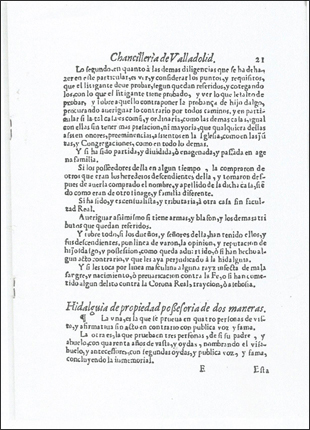 Chancilleria de Valladolid.
21
Lo segundo, en quanto à las demas diligencias que se deben ha
zer en este particular, es ver, y considerar los puntos, y requisitos,
que el litigante deve probar, segun quedan referidos, y cotegando
los, con lo que el litigante tiene probado, y ver lo que le falta de
probar, y sobre aquello contraponer la probança de hijo dalgo,
procurando averiguar lo contrario por todos caminos, y en parti-
cular si la tal casa es comũ, y ordinaria, como las demas casas, igual
con ellas sin tener mas prelacion, ni mayoria, que qualquiera dellas
assi en onores, preeminencias, assientos en la Iglesia, como en las jũ
tas, y Congregaciones, como en todo lo demas.
Y si ha sido partida, y dividida, ò enagenada, y passada en age
na familia.
Si los possehedores della en algun tiempo, la compraron de
otros que eran los herederos descendientes della, y tomaron des-
pues de averla comprado el nombre, y apellido de la dicha casa, siẽ
do como eran de otro linage, y familia diferente.
Si ha sido, y es censualista, y tributaria, ò otra casa sin facul-
tad Real.
Averiguarà si mismo si tiene armas, y blason, y los demas tri
butos que quedan referidos.
Y sobre todo, si los dueños, y señores della, han tenido ellos, y
sus descendientes, por linea de varon, la opinion, y reputacion de
hijosdalgo, y possession, como queda advertido, ò si han hecho al-
gun acto contrario, y que les aya perjudicado à la hidalguia.
Y si les toca por linea masculina alguna raza infecta de mala
sangre, y nacimiento, ò prevaricacion contra la Fe, ò si han come-
tido algun delito contra la Corona Real, traycion, ò alebosia.
Hidalguia de propiedad possessoria de dos maneras.
¶ La una, es la que se prueba en quatro personas de vis-
to, y afirmativas sin acto en contrario con publica voz y fama.
La otra es, la que prueban tres personas, de si su padre, y
abuelo, con quarenta años de vista, y oydas, nombrando el visa-
buelo, y antecessores, con segundas oydas, y publica voz, y fama,
concluyendo la inmemorial.
E
Esta